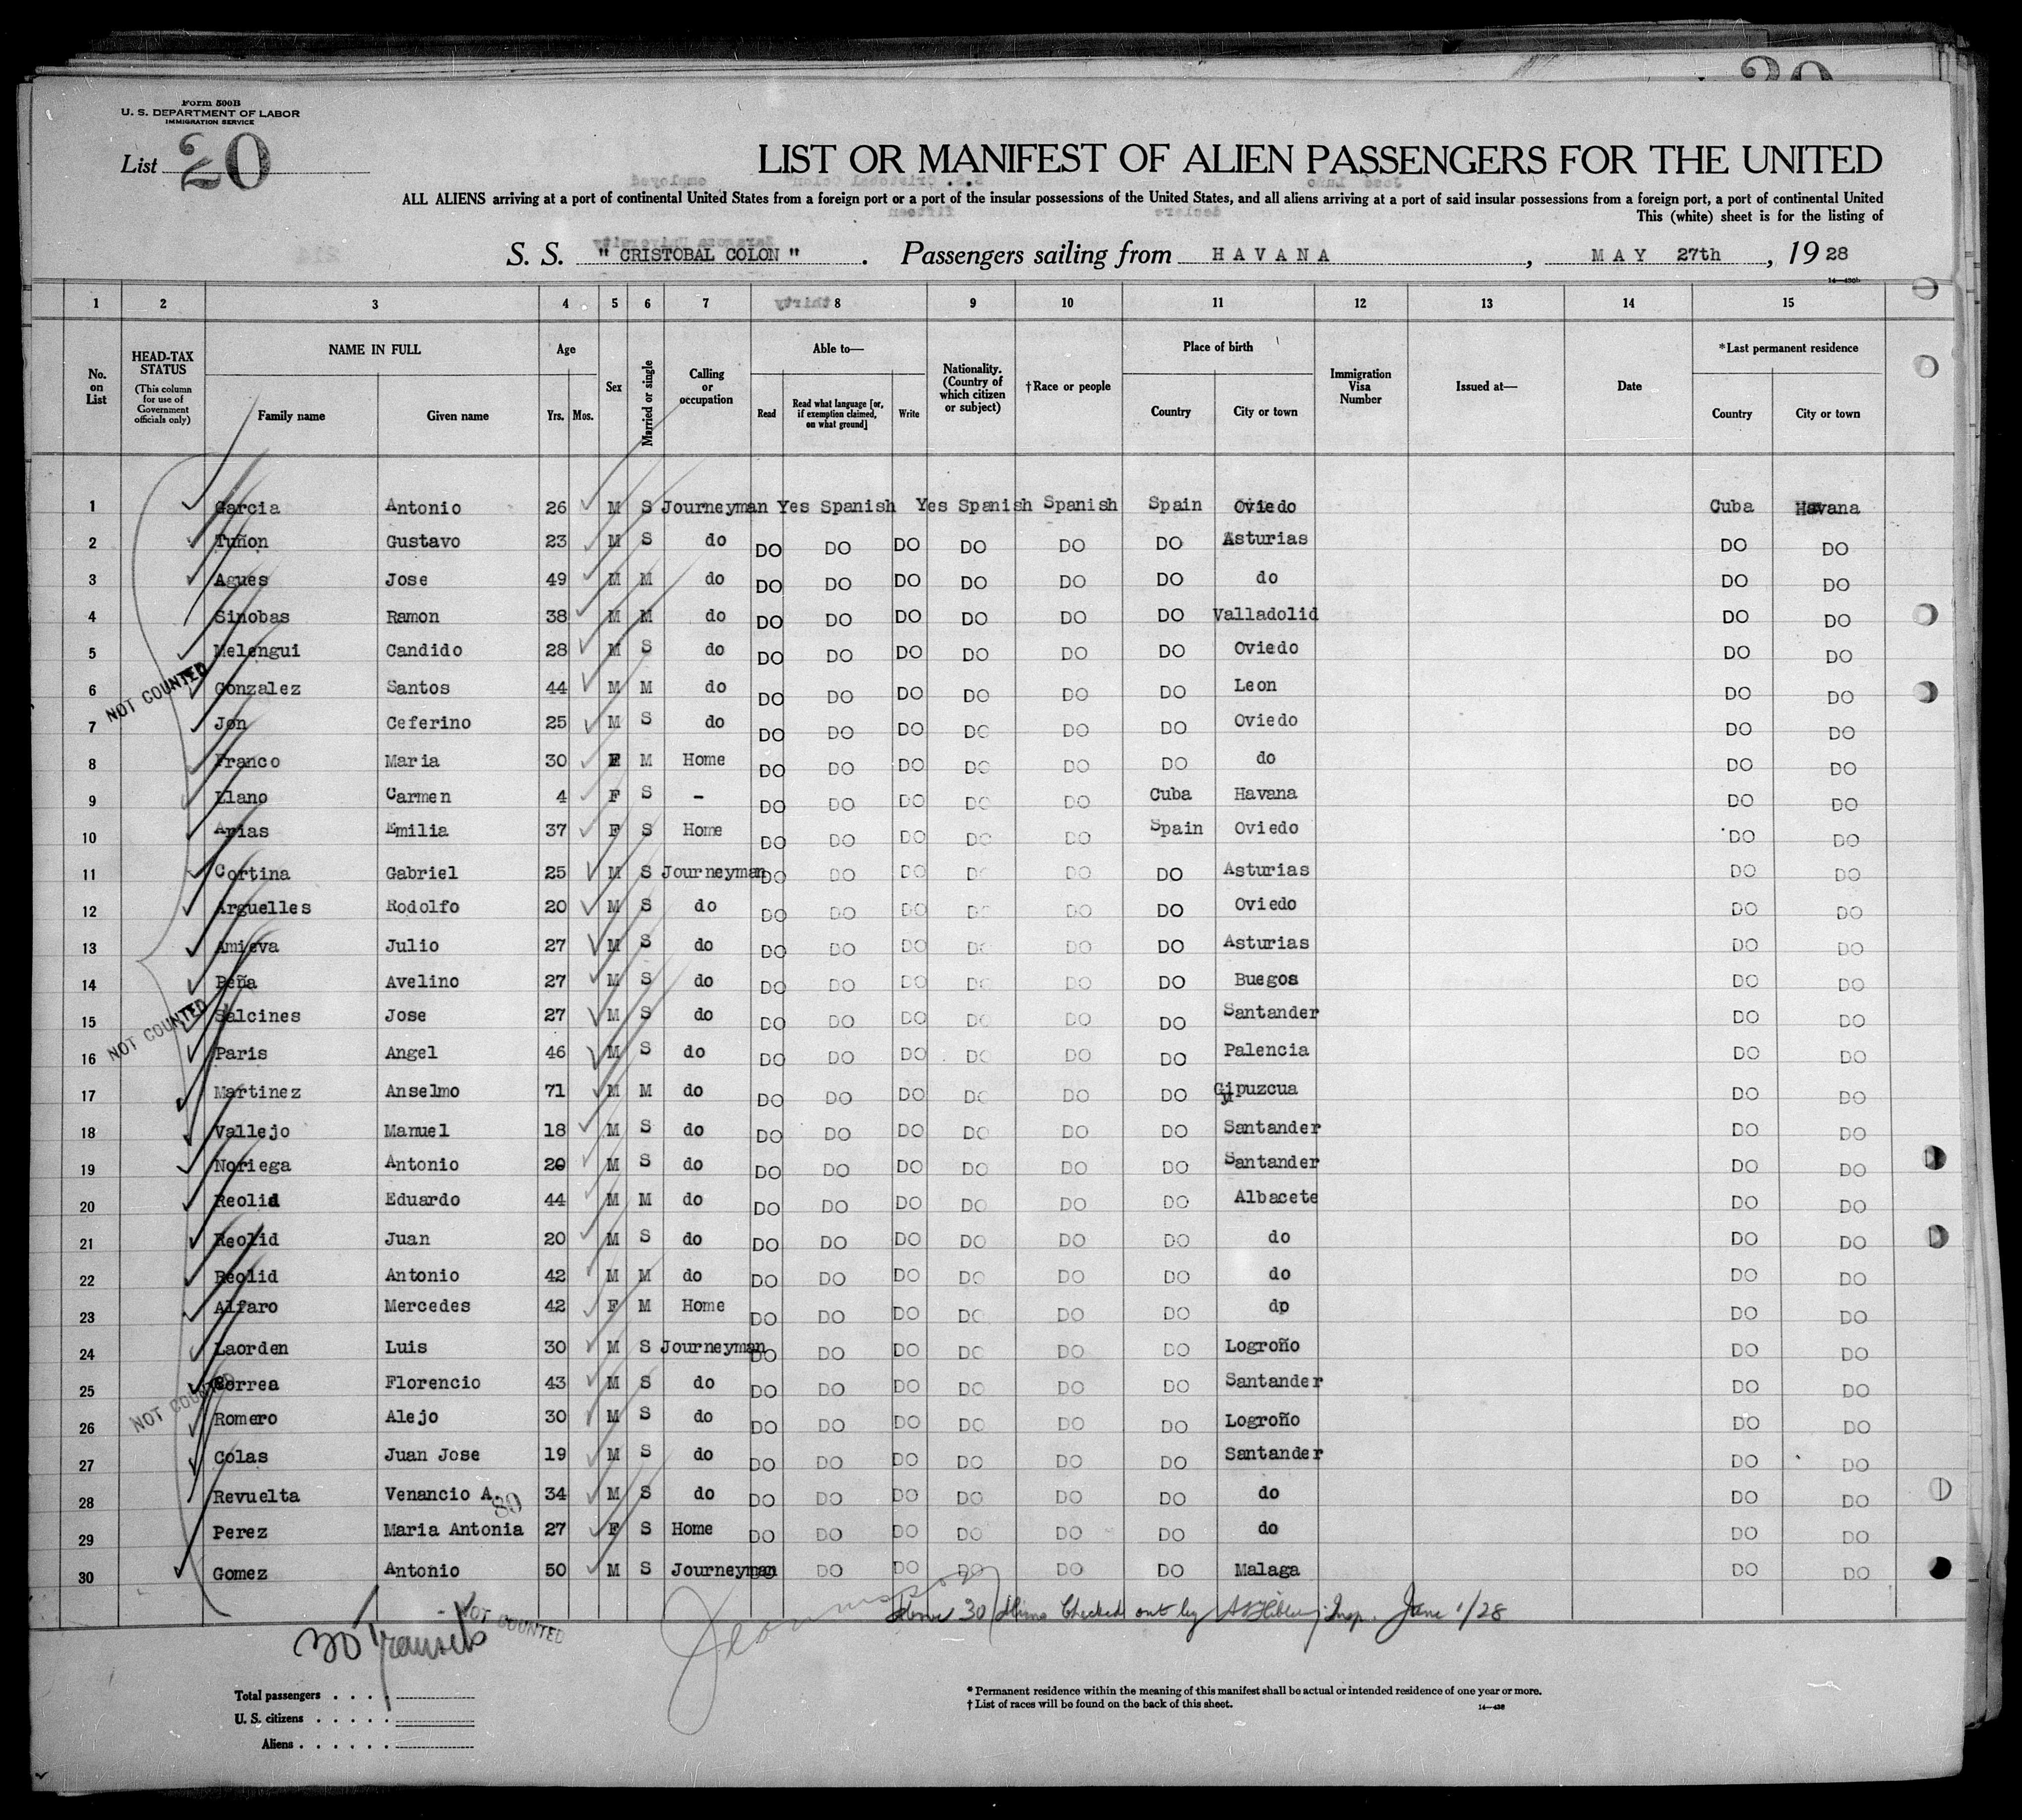 Form 500B
U. S. DEPARTMENT OF LABOR
IMMIGRATION SERVICE
List 20
LIST OR MANIFEST OF ALIEN PASSENGERS FOR THE UNITED
ALL ALIENS arriving at a port of continental United States from a foreign port or a port of the insular possessions of the United States, and all aliens arriving at a port of said insular possessions from a foreign port, a port of continental United
This (white) sheet is for the listing of
S. S. " CRISTOBAL COLON " . Passengers sailing from HAVANA , MAY 27th , 19 28
14—430b
1 2 3 4 5 6 7 8 9 10 11 12 13 14 15
No. on List
HEAD-TAX STATUS (This column for use of Government officials only)
NAME IN FULL
Family name Given name
Age
Yrs. Mos.
Sex
Married or single
Calling or occupation
Able to—
Read
Read what language [or, if exemption claimed, on what ground]
Write
Nationality. (Country of which citizen or subject)
†Race or people
Place of birth
Country City or town
Immigration Visa Number
Issued at—
Date
*Last permanent residence
Country City or town
1 Garcia Antonio 26 M S Journeyman Yes Spanish Yes Spanish Spanish Spain Oviedo Cuba Havana
2 Tuñon Gustavo 23 M S do DO DO DO DO DO DO Asturias DO DO
3 Agues Jose 49 M M do DO DO DO DO DO DO do DO DO
4 Sinobas Ramon 38 M M do DO DO DO DO DO DO Valladolid DO DO
5 Melengui Candido 28 M S do DO DO DO DO DO DO Oviedo DO DO
6 Gonzalez Santos 44 M M do DO DO DO DO DO DO Leon DO DO
7 Jon Ceferino 25 M S do DO DO DO DO DO DO Oviedo DO DO
8 Franco Maria 30 F M Home DO DO DO DO DO DO do DO DO
9 Llano Carmen 4 F S - DO DO DO DO DO Cuba Havana DO DO
10 Arias Emilia 37 F S Home DO DO DO DO DO Spain Oviedo DO DO
11 Cortina Gabriel 25 M S Journeyman DO DO DO DO DO DO Asturias DO DO
12 Arguelles Rodolfo 20 M S do DO DO DO DO DO DO Oviedo DO DO
13 Amieva Julio 27 M S do DO DO DO DO DO DO Asturias DO DO
14 Peña Avelino 27 M S do DO DO DO DO DO DO Buegos DO DO
15 Salcines Jose 27 M S do DO DO DO DO DO DO Santander DO DO
16 Paris Angel 46 M S do DO DO DO DO DO DO Palencia DO DO
17 Martinez Anselmo 71 M M do DO DO DO DO DO DO Guipuzcua DO DO
18 Vallejo Manuel 18 M S do DO DO DO DO DO DO Santander DO DO
19 Noriega Antonio 20 M S do DO DO DO DO DO DO Santander DO DO
20 Reolid Eduardo 44 M M do DO DO DO DO DO DO Albacete DO DO
21 Reolid Juan 20 M S do DO DO DO DO DO DO do DO DO
22 Reolid Antonio 42 M M do DO DO DO DO DO DO do DO DO
23 Alfaro Mercedes 42 F M Home DO DO DO DO DO DO do DO DO
24 Laorden Luis 30 M S Journeyman DO DO DO DO DO DO Logroño DO DO
25 Correa Florencio 43 M S do DO DO DO DO DO DO Santander DO DO
26 Romero Alejo 30 M S do DO DO DO DO DO DO Logroño DO DO
27 Colas Juan Jose 19 M S do DO DO DO DO DO DO Santander DO DO
28 Revuelta Venancio A. 34 M S do DO DO DO DO DO DO do DO DO
29 Perez Maria Antonia 27 F S Home DO DO DO DO DO DO do DO DO
30 Gomez Antonio 50 M S Journeyman DO DO DO DO DO DO Malaga DO DO
NOT COUNTED
NOT COUNTED
NOT COUNTED
NOT COUNTED
30 Aliens Checked out by Insp. June 1/28
30 Transits
Total passengers
U. S. citizens
Aliens
* Permanent residence within the meaning of this manifest shall be actual or intended residence of one year or more.
† List of races will be found on the back of this sheet.
14—430